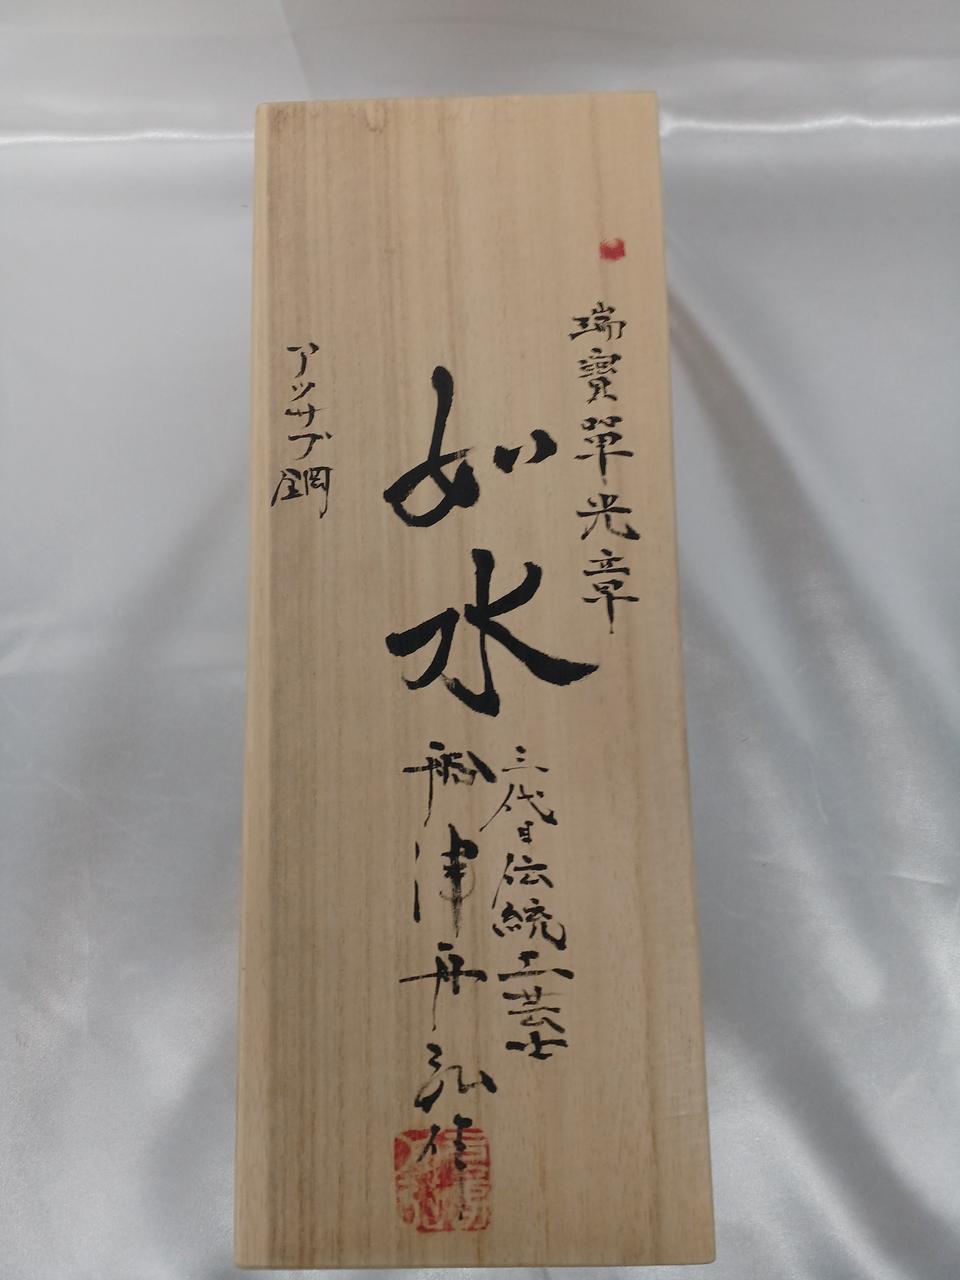 瑞寳單光章
如水
三代目伝統工芸士
船津舟弘作
アッサブ鋼